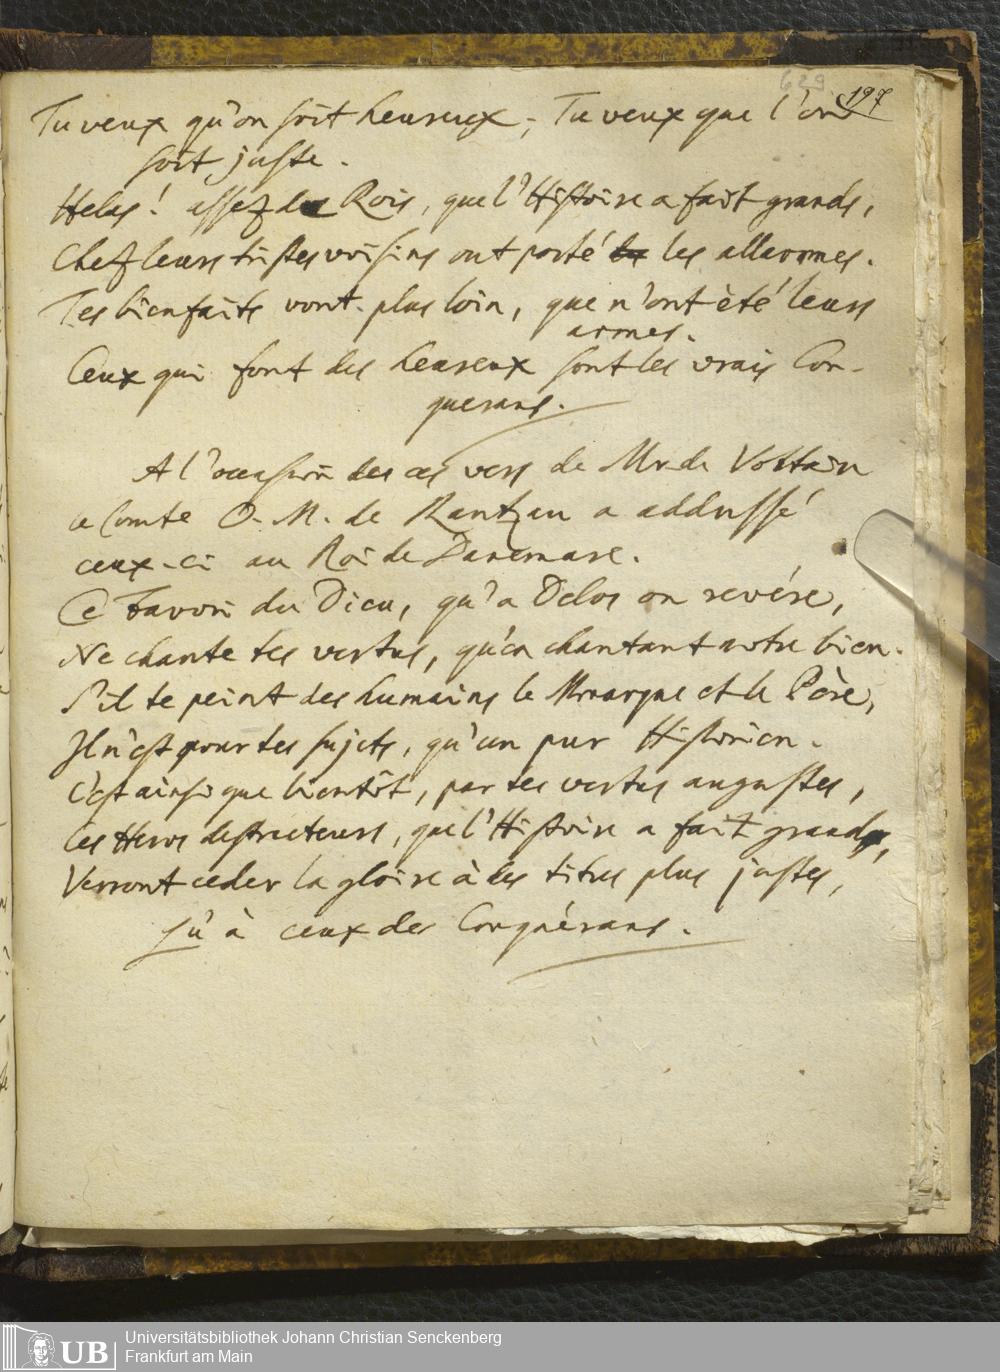 629
197
Tu veux qu'on soit heureux; Tu veux que l'on
soit juste.
Helas! assez de Rois, que l'Histoire a fait grands,
Chez leurs tristes voisins ont porté les allarmes.
Tes bienfaits vont plus loin, que n'ont été leurs
armes.
Ceux qui font des heureux sont les vrais Con-
querans.
A l'occasion des ces vers de Mr. de Voltaire
le Comte O. M. de Rantzau a addressé
ceux-ci au Roi de Danemarc.
Ce Favori du Dieu, qu'a Delos on revére,
Ne chante tes vertus, qu'en chantant notre bien.
S'il te peint des humains le Monarque et le Père,
Il n'est pour tes sujets, qu'un pur Historien.
C'est ainsi que bientôt, par tes vertus augustes,
Ces Heros destructeurs, que l'Histoire a fait grands,
Verront ceder la gloire à des titres plus justes,
Qu'à ceux des Conquérans.
Universitätsbibliothek Johann Christian Senckenberg
Frankfurt am Main
UB